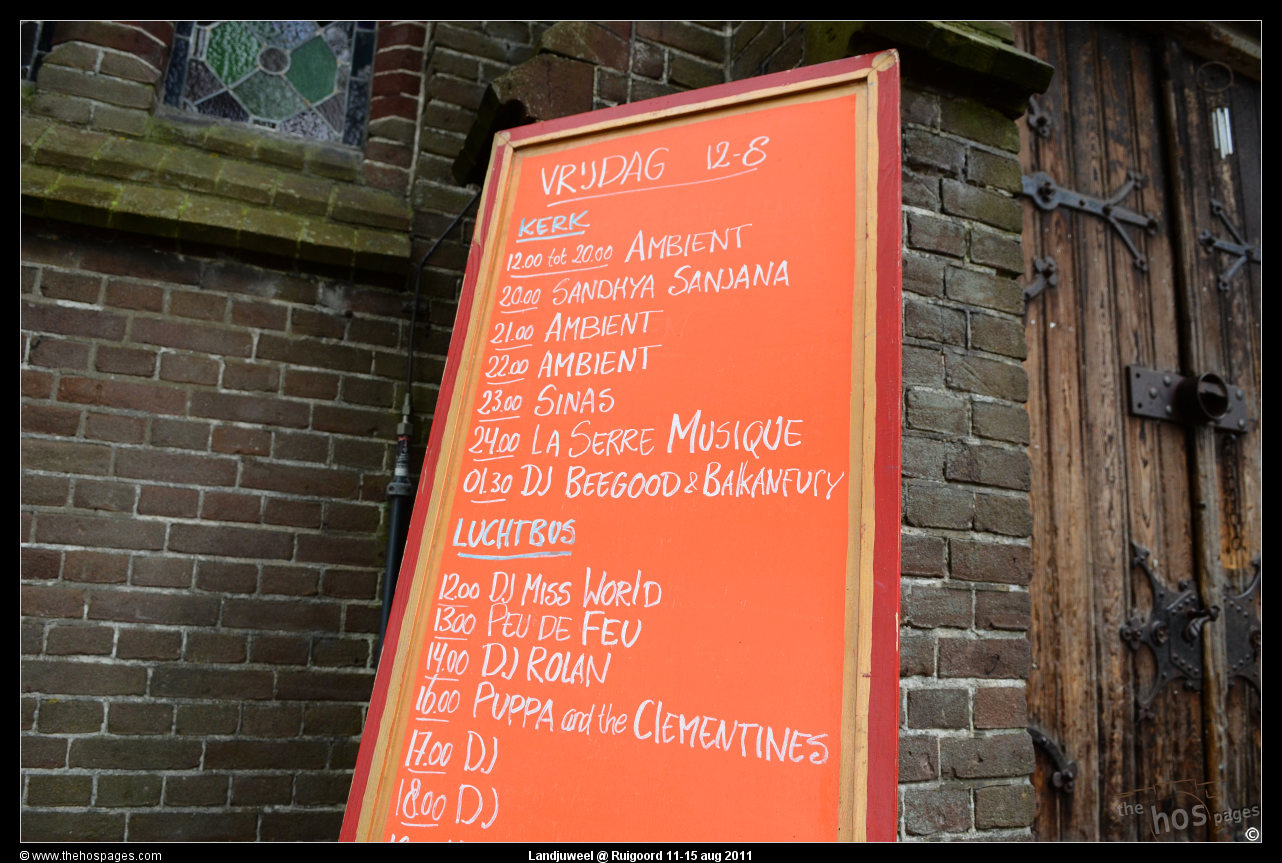 VRIJDAG 12-8
KERK
12.00 tot 20.00 AMBIENT
20.00 SANDHYA SANJANA
21.00 AMBIENT
22.00 AMBIENT
23.00 SINAS
24.00 LA SERRE MUSIQUE
01.30 DJ BEEGOOD & BAlKANFURY
LUCHTBUS
12.00 DJ MISS WORlD
13.00 PEU DE FEU
14.00 DJ ROLAN
16.00 PUPPA and the CLEMENTINES
17.00 DJ
18.00 DJ
the hos pages
©
© www.thehospages.com
Landjuweel @ Ruigoord 11-15 aug 2011